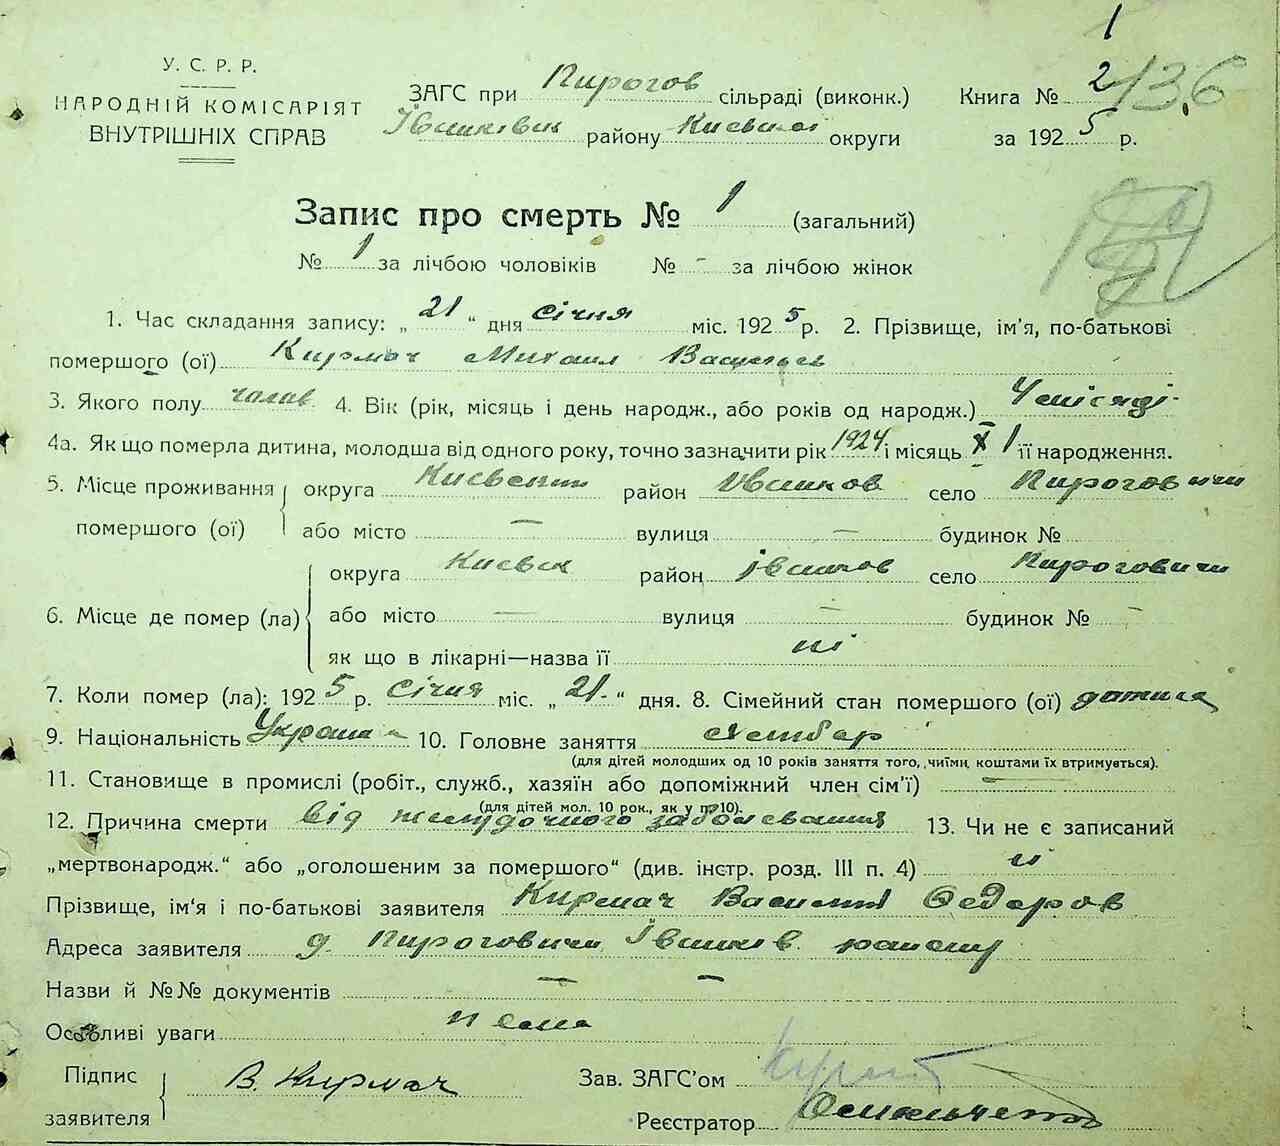 1
У. С. Р. Р.
НАРОДНІЙ КОМІСАРІЯТ
ВНУТРІШНІХ СПРАВ
ЗАГС при Пирогов сільраді (виконк.)
Іванківск району Киевской округи
Книга № 2 136
за 1925 р.
Запис про смерть № 1 (загальний)
№ 1 за лічбою чоловіків № - за лічбою жінок
1. Час складання запису: „21“ дня січня міс. 1925 р. 2. Прізвище, ім'я, по-батькові
помершого (ої) Кирмач Михаил Васильев
3. Якого полу чолов 4. Вік (рік, місяць і день народж., або років од народж.)
4а. Як що померла дитина, молодша від одного року, точно зазначити рік 1924 і місяць X 1 її народження.
5. Місце проживання округа район Иванков село Пироговичи
помершого (ої) або місто — вулиця — будинок №
округа Киевск район Іванков село Пироговичи
6. Місце де помер (ла) або місто — вулиця — будинок № -
як що в лікарні—назва її ні
7. Коли помер (ла): 1925 р. січня міс. „21“ дня. 8. Сімейний стан помершого (ої) дитина
9. Національність 10. Головне заняття хлебороб
(для дітей молодших од 10 років заняття того, чиїми коштами їх втримується).
11. Становище в промислі (робіт., служб., хазяїн або допоміжний член сім'ї) —
(для дітей мол. 10 рок., як у п. 10).
12. Причина смерти від желудочного заболевания 13. Чи не є записаний
„мертвонародж.“ або „оголошеним за помершого“ (див. інстр. розд. III п. 4) ні
Прізвище, ім'я і по-батькові заявителя Кирмач Василий Федоров
Адреса заявителя д Пироговичи Іванків. району
Назви й №№ документів — —
Особливі уваги нема
Підпис
заявителя В. Кирмач
Зав. ЗАГС'ом
Реєстратор